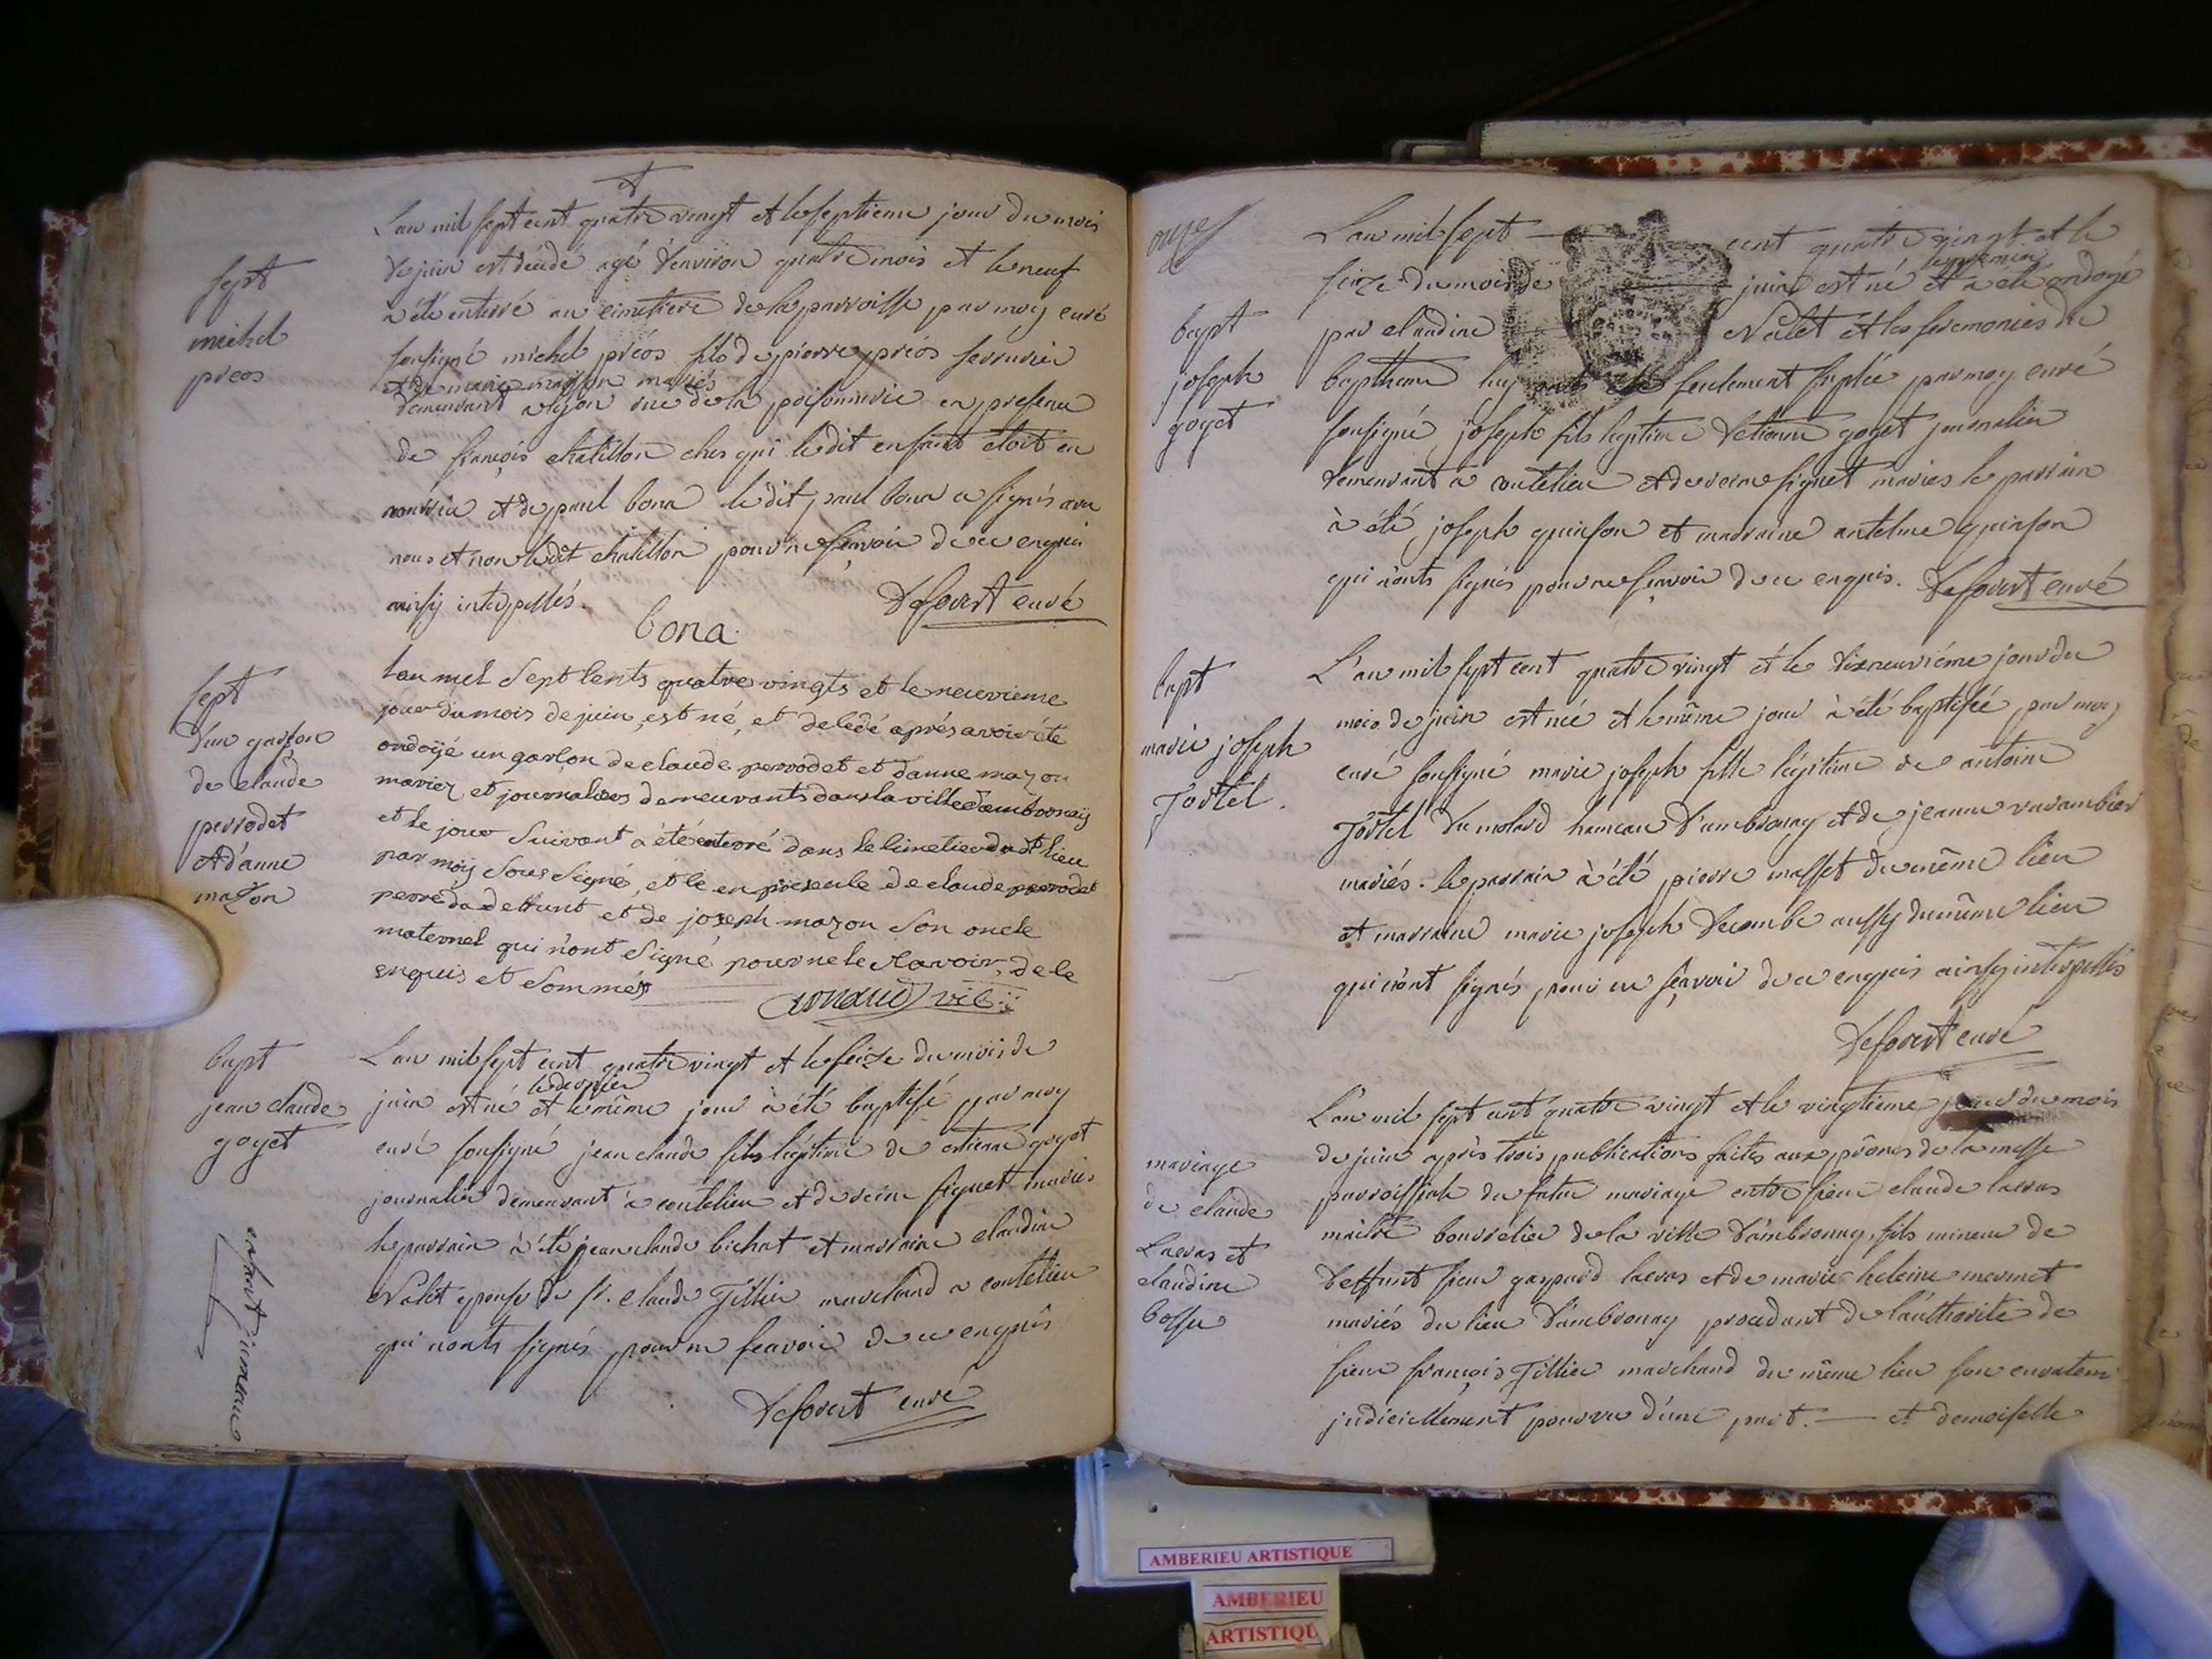 L'an mil sept cent quatre vingt et le septieme jour du mois
de juin est décédé agé d'environ quatre mois et le neuf
a été enterré au cimetiere de la parroisse par moy curé
sousigné michel préos fils de pierre préos serrurier
et de marie masson mariés
demeurant a lyon rue de la poisonnerie en presence
de françois chatillon ches qui ledit enfant étoit en
nourrice et de paul bona ledit paul bona a signés avec
nous et non ledit chatillon pour ne sçavoir de ce enquis
ainsy interpellés.
Deforest curé
bona
sept
michel
preos
lan mil Sept cents quatre vingts et le neuvieme
jour du mois de juin, est né, et decedé aprés avoir été
ondoÿé un garçon de claude perrodet et danne mazon
mariez et journaliers demeurants dans la ville d'ambronay
et le jour Suivant a été enterré dans le cimetiere dudt lieu
par moÿ Sous Signé, et ce en présence de claude perrodet
perre du deffunt et de joseph mazon Son oncle
maternel qui n'ont Signé pour ne le scavoir, de ce
enquis et Sommés
sept
d'un garson
de claude
perrodet
et d'anne
mazon
L'an mil sept cent quatre vingt et le seize du mois de
juin est né le dernier et le même jour à été baptisé par moy
curé sousigné jean claude fils légitime de etienne goyet
journalier demeurant à coutelieu et de reine signet mariés
le parrain à été jean claude bichat et marraine claudine
Nalet epouse de sr. claude Tillier marchand a coutelieu
qui nonts signés pour ne scavoir de ce enquis
Deforest curé
bapt
jean claude
goyet
enfant jumeau
onze
L'an mil sept cent quatre vingt et le
seize du mois de juin est né le premier et à été ondoyé
par claudine Nalet et les seremonies du
baptheme luy onts été seulement suplée par moy curé
sousigné joseph fils legitime d'etienne goyet journalier
demeurant à coutelieu et de reine signet mariés le parrain
à été joseph guinson et marraine antelme guinson
qui n'onts signés pour ne sçavoir de ce enquis. Deforest curé
bapt
joseph
goyet
L'an mil sept cent quatre vingt et le dixneuviéme jour du
mois de juin est née et le même jour à été baptisée par moy
curé sousigné marie joseph fille légitime de antoine
Tostel du molard hameau d'ambronay et de jeanne varambier
mariés. le parrain à été pierre masset du même lieu
et marraine marie joseph Decombe aussy du même lieu
qui n'ont signés pour ne sçavoir de ce enquis ainsy interpellés
Deforest curé
bapt
marie joseph
Tostel.
L'an mil sept cent quatre vingt et le vingtieme jour du mois
de juin après trois publications faites aux prônes de la messe
parroissiale du futur mariage entre sieur claude lacras
maitre bourrelier de la ville d'ambronay, fils mineur de
deffunt sieur gaspard lacras et de marie heleine mermet
mariés du lieu d'ambronay procedant de l'authorité de
sieur françois Tillier marchand du même lieu son curateur
judiciellement pourvu d'une part. — et demoiselle
mariage
de claude
Lacras et
claudine
bossu
AMBERIEU ARTISTIQUE
AMBERIEU
ARTISTIQU